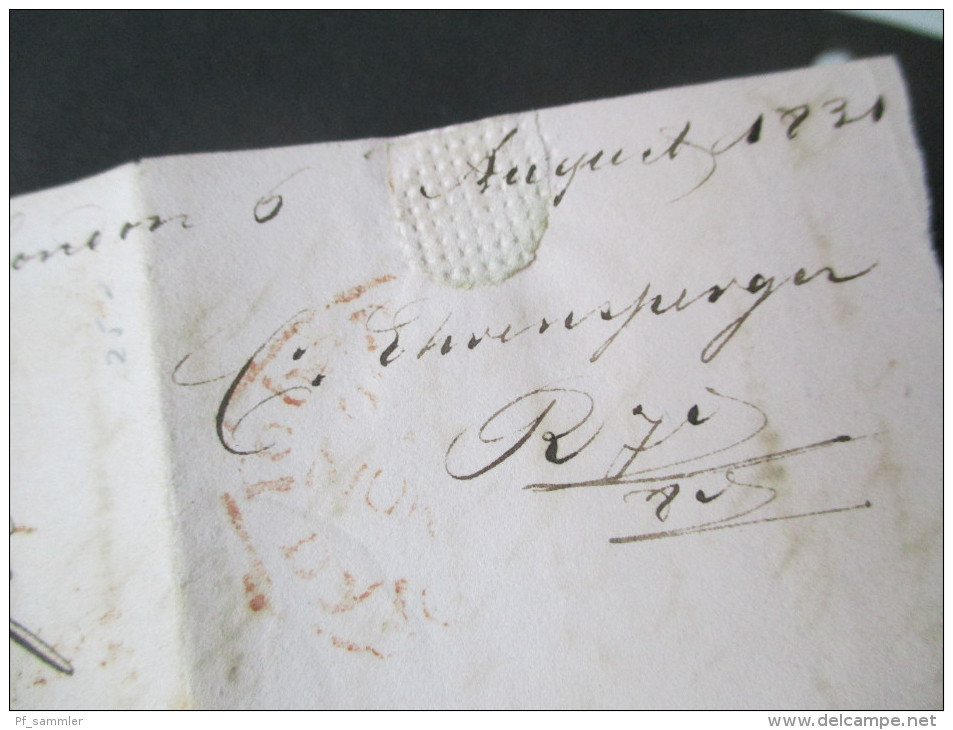 London 6 August 1831
C. Ehrensperger
R 7d
8d
25
Pf_sammler
www.delcampe.net